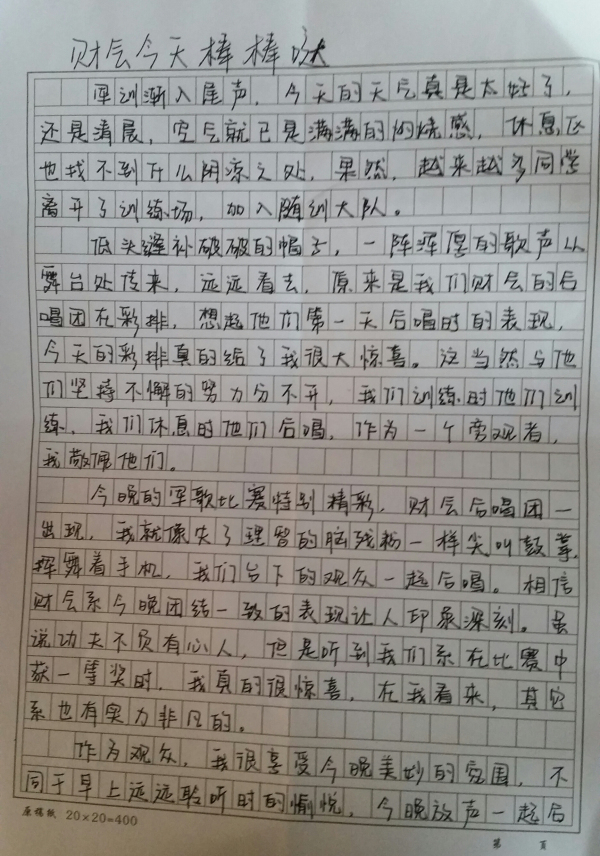 财会今天棒棒哒
军训渐入尾声，今天的天气真是太好了，
还是清晨，空气就已是满满的灼烧感，休息区
也找不到什么阴凉之处，果然，越来越多同学
离开了训练场，加入随训大队。
低头缝补破破的帽子，一阵浑厚的歌声从
舞台处传来，远远看去，原来是我们财会的后
唱团在彩排，想起他们第一天后唱时的表现，
今天的彩排真的给了我很大惊喜。这当然与他
们坚持不懈的努力分不开，我们训练时他们训
练，我们休息时他们后唱，作为一个旁观者，
我敬佩他们。
今晚的军歌比赛特别精彩，财会后唱团一
出现，我就像失了理智的脑残粉一样尖叫鼓掌，
挥舞着手机，我们台下的观众一起后唱。相信
财会系今晚团结一致的表现让人印象深刻。虽
说功夫不负有心人，但是听到我们系在比赛中
获一等奖时，我真的很惊喜，在我看来，其它
系也有实力非凡的。
作为观众，我很享受今晚美妙的氛围，不
同于早上远远聆听时的愉悦，今晚放声一起后
原稿纸 20×20=400
第 页